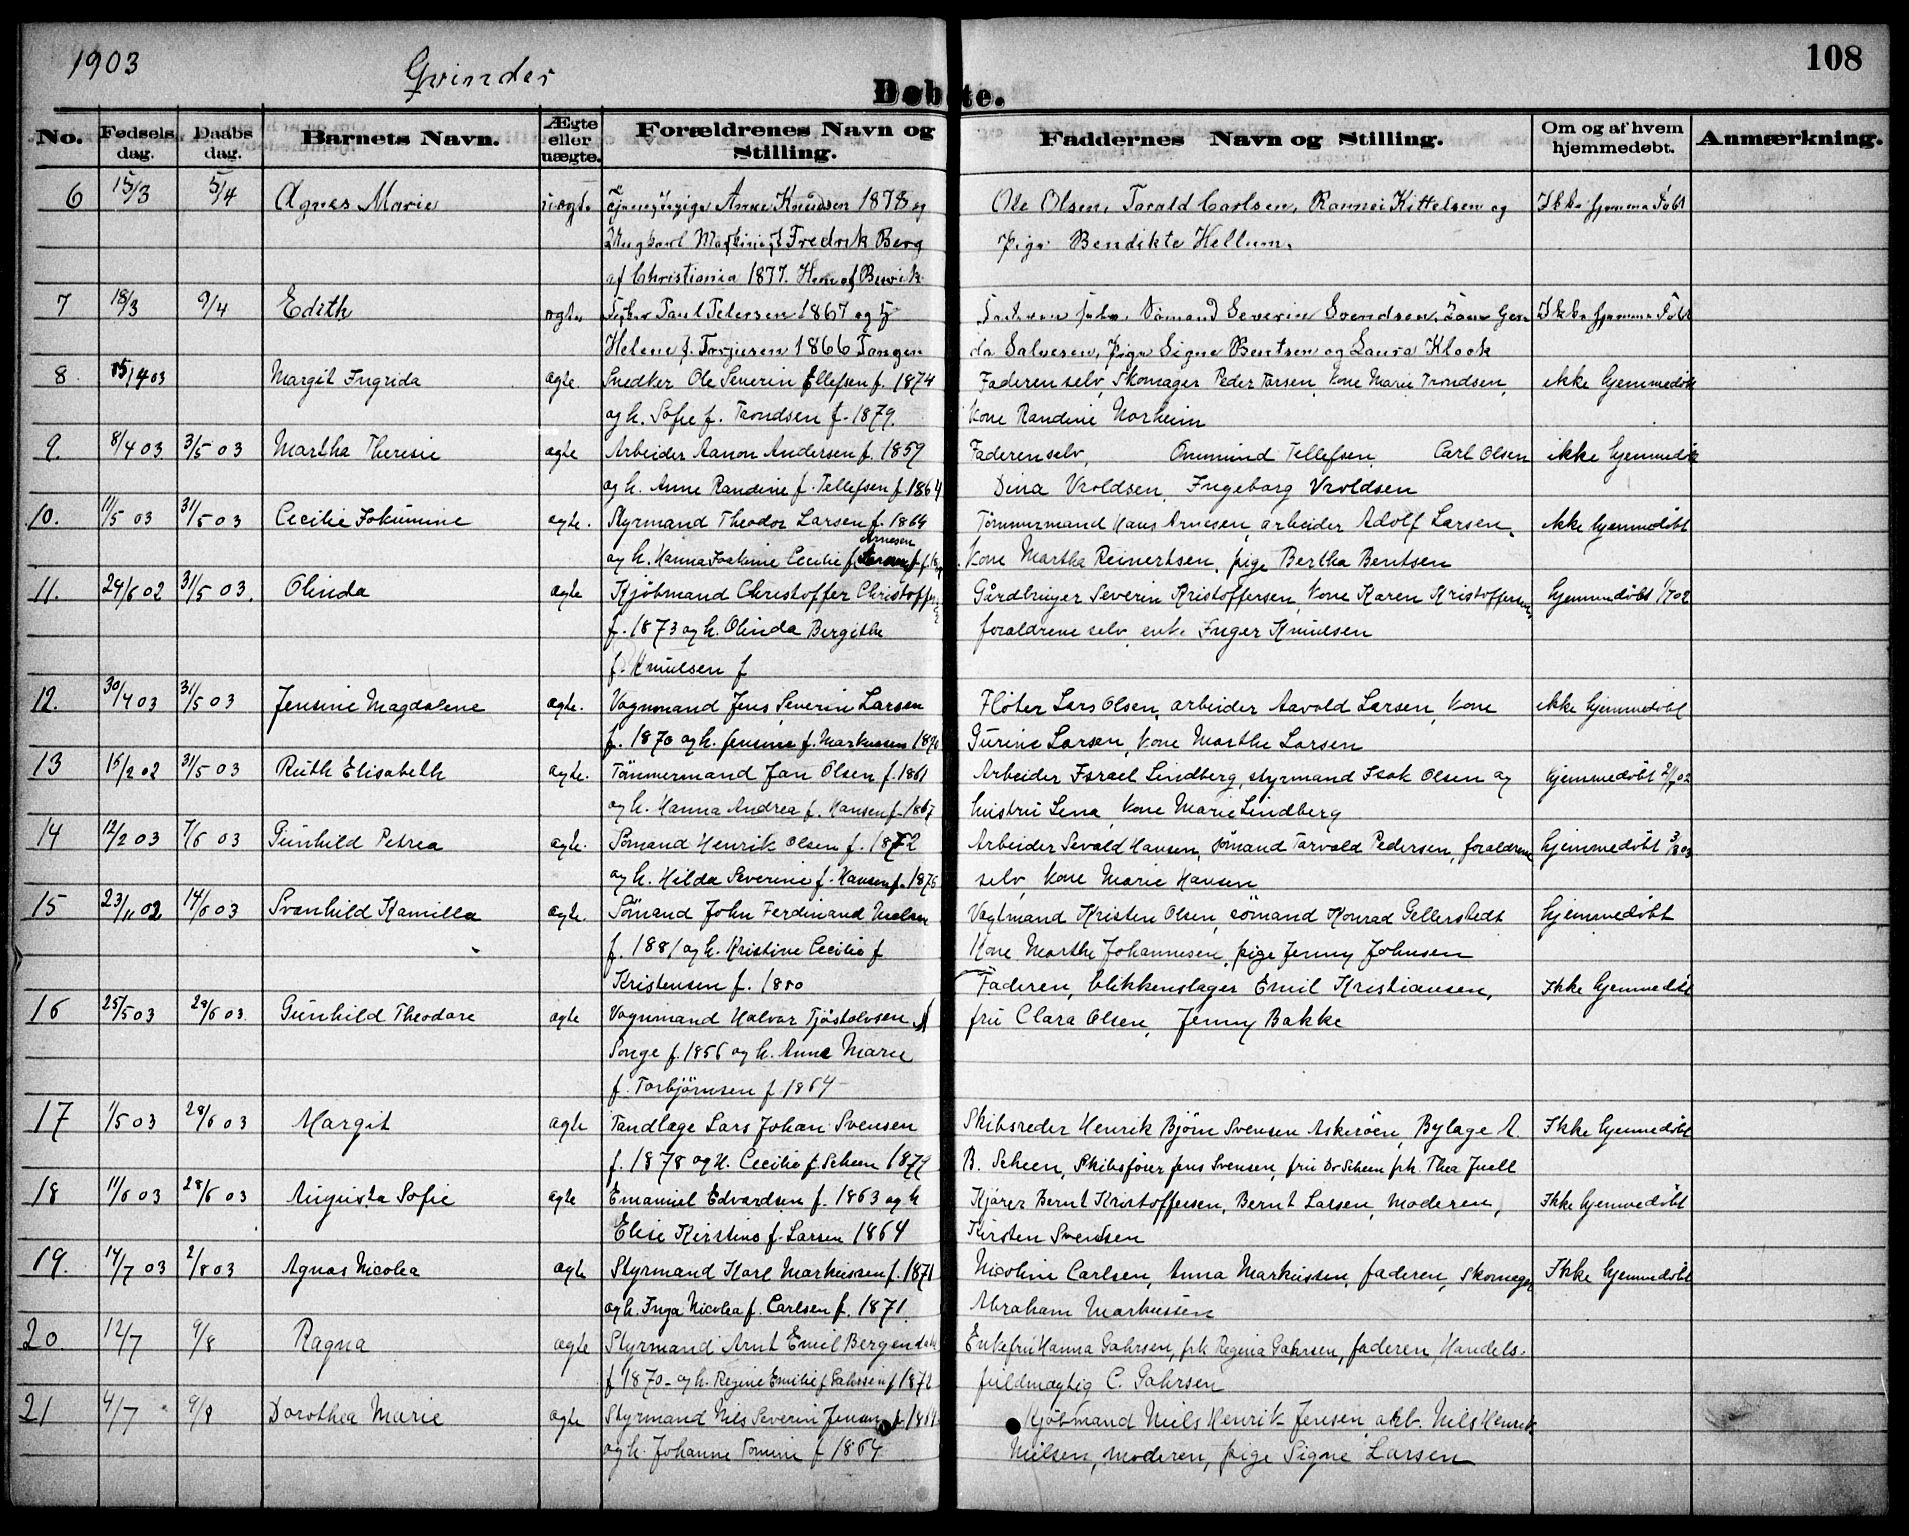 1903 Qvinder 108
Døbte.
No. Fødsels dag. Daabs dag. Barnets Navn. Ægte eller uægte. Forældrenes Navn og Stilling. Faddernes Navn og Stilling. Om og af hvem hjemmedøbt. Anmærkning.
6 15/3 5/4 Agnes Marie uægte Tjenestepige Anne Knudsen 1878 og Ole Olsen, Tarald Carlsen, Rannei Kittelsen og Ikke hjemmedøbt
Ungkarl Maskinist Fredrik Berg pige Bendikte Hellum.
af Christiania 1877. Hun af
7 18/3 9/4 Edith ægte Paul Petersen 1867 og h Faderen selv, Sømand Severin Svendsen, Kone Ger Ikke hjemmedøbt
Helene f. Terjesen 1866 Tangen da Salvesen, pige Signe Bentsen og Laura Klock
8 15/4 03 Margit Ingrida ægte Snedker Ole Severin Ellefsen f. 1874 Faderen selv, Skomager Peder Tarsen, kone Marie Trondsen, ikke hjemmedøbt
og h. Sofie f. Trondsen f. 1879. kone Randine Norheim
9. 8/4 03 3/5 03 Martha Theresie ægte Arbeider Aanon Andersen f. 1859 Faderen selv, Onumund Tellefsen, Carl Olsen ikke hjemmedøbt
og h. Anne Randine f. Tellefsen f. 1864 Dina Vroldsen, Ingeborg Vroldsen
10. 11/5 03 31/5 03 Cecilie Jokumine ægte. Styrmand Theodor Larsen f. 1869 Tømmermand Hans Arnesen, arbeider Adolf Larsen, ikke hjemmedøbt
Arnesen
og h. Hanna Joakime Cecilie f. kone Martha Reinertsen, pige Bertha Bentsen
11. 24/6 02 31/5 03. Olinda ægte Kjøbmand Christoffer Christoffersen Gårdbruger Severin Kristoffersen, kone Karen Kristoffersen, hjemmedøbt 1/7 02
f. 1873 og h. Olinda Bergithe forældrene selv, enke Inger Knudsen
f. Knudsen f
12. 30/4 03 31/5 03 Jensine Magdalene ægte. Vognmand Jens Severin Larsen Fløter Lars Olsen, arbeider Aavold Larsen, kone ikke hjemmedøbt
f. 1870 og h. Jensine f. Markussen Gurine Larsen, kone Marthe Larsen
13 15/2 02 31/5 03 Ruth Elisabeth ægte. Tømmermand Jan Olsen f. 1861 Arbeider Israel Lindberg, styrmand Isak Olsen og hjemmedøbt
og h. Hanna Andrea f. Hansen f. 1867 hustru Lena, kone Marie Lindberg
14 12/2 03 7/6 03 Gunhild Petrea ægte. Sømand Henrik Olsen f. 1872 Arbeider Sevald Hansen, sømand Tarvald Pedersen, forældrene hjemmedøbt
og h. Hilda Severine f. Hansen f. 1876 selv, kone Marie Hansen
15 23/11 02 14/6 03 Svanhild Kamilla ægte. Sømand John Ferdinand Nielsen Vagtmand Kristen Olsen, sømand Konrad Gellerstedt hjemmedøbt
f. 1881 og h. Kristine Cecilie f kone Marthe Johannesen, pige Jenny Johnsen
Kristensen f. 1880
16 25/5 03 28/6 03. Gunhild Theodore ægte Vognmand Halvor Tjøstolvsen Faderen, blikkenslager Emil Kristiansen, Ikke hjemmedøbt
Songe f. 1856 og h. Anne Marie fru Clara Olsen, Jenny Bakke
f. Torbjørnsen f 1864
17 1/5 03 28/6 03 Margit ægte Tandlæge Lars Johan Svensen Skibsreder Henrik Bjørn Svensen Askerøen, Bylæge A. Ikke hjemmedøbt
f. 1878 og h. Cecilie f. Scheen 1879 B. Scheen, Skibsfører Jens Svensen, fru Dr Scheen frk. Thea Juell
18 11/6 03 28/6 03 Augusta Sofie ægte Emanuel Edvardsen f. 1863 og h Kjører Bernt Kristoffersen, Bernt Larsen, Moderen, Ikke hjemmedøbt
Elise Kirstine f. Larsen 1864 Kirsten Svendsen
19. 14/7 03 2/8 03 Agnes Nicolea ægte Styrmand Karl Markussen f. 1871 Nicoline Carlsen, Anna Markussen, faderen, Skomager Ikke hjemmedøbt
og h. Inga Nicolea f. Carlsen f. 1871 Abraham Markussen
20. 12/7 9/8 Ragna ægte Styrmand Arnt Emil Bergendahl Enkefru Hanna Gahrsen, frk Regina Gahrsen, faderen, Handels-
f 1870 og h. Regine Emilie f Gahrsen f 1872 fuldmægtig C. Gahrsen
21 4/7 9/8 Dorothea Marie ægte Styrmand Nils Severin Jensen Kjøbmand Niels Henrik Jensen, arb. Nils Henrik
og h. Johanne Tomine f 1864 Nielsen, moderen, pige Signe Larsen